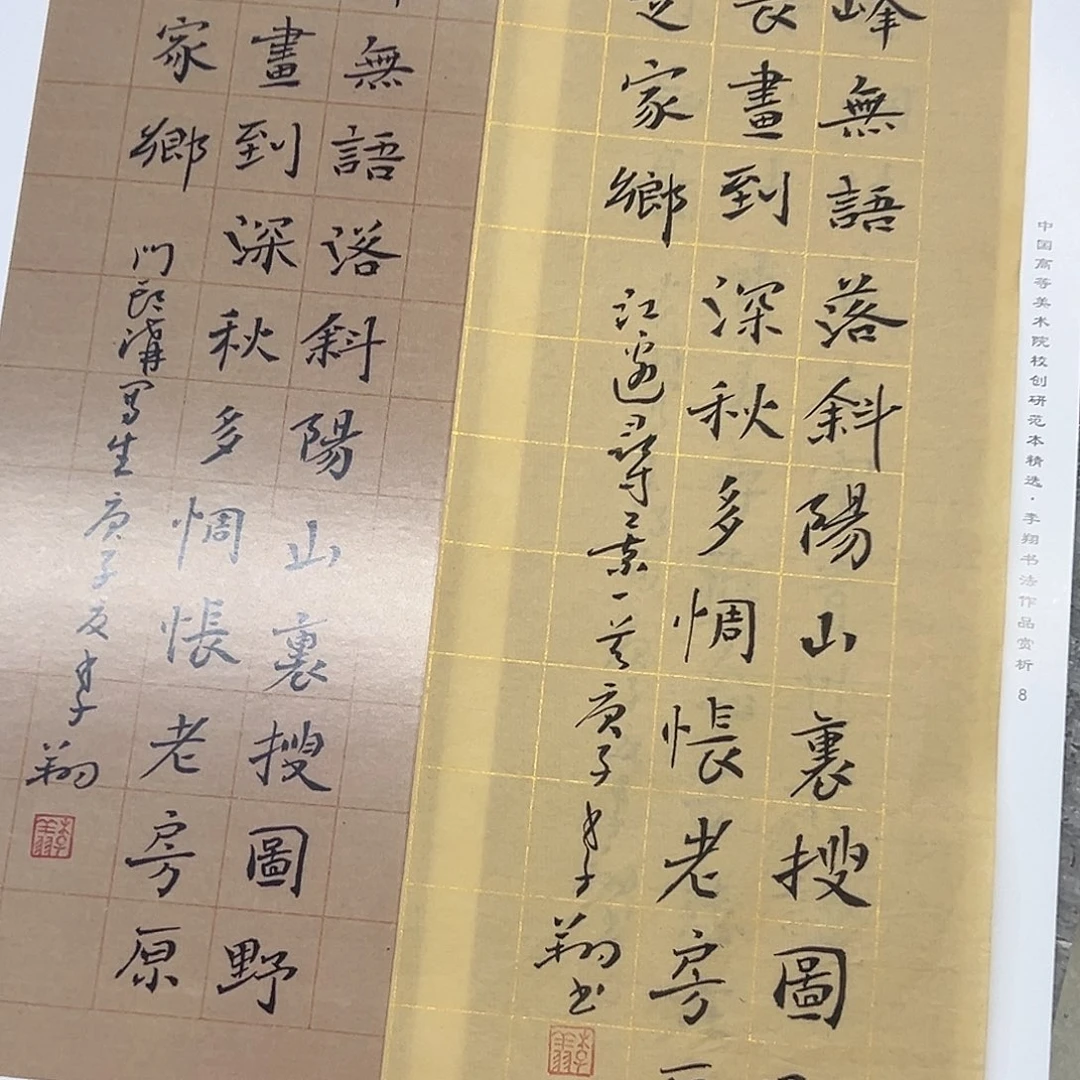 中国高等美术院校创研范本精选·李翔书法作品赏析 8
峰無語落斜陽山裏搜圖
長畫到深秋多惆悵老房
是家鄉
江邊尋景一首庚子李翔书
李翔
無語落斜陽山裏搜圖野
畫到深秋多惆悵老房原
家鄉
門頭溝写生庚子夏李翔
李翔